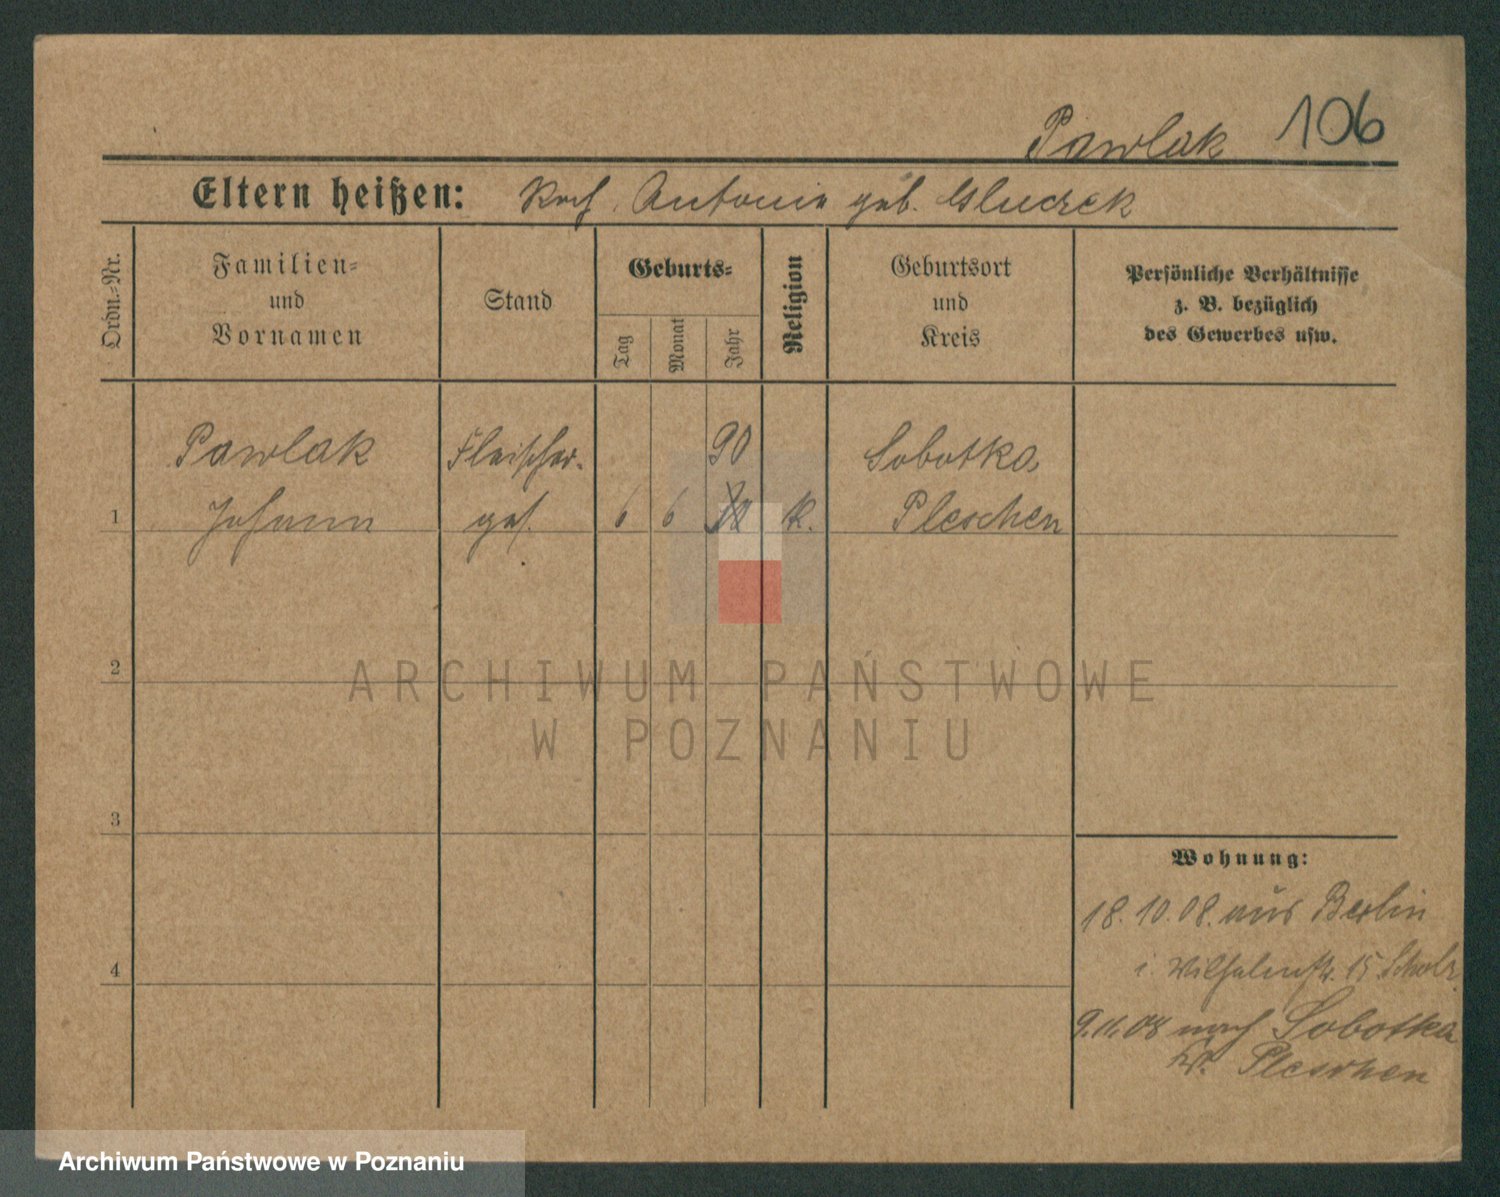 Pawlak 106
Eltern heißen: Roch, Antonie geb. Gluczek
Ordn.-Nr.
Familien-
und
Vornamen
Stand
Geburts-
Tag
Monat
Jahr
Religion
Geburtsort
und
Kreis
Persönliche Verhältnisse
z. B. bezüglich
des Gewerbes usw.
Pawlak Fleischer- 90 Sobotka
1 Johann ges. 6 6 k. Pleschen
2
ARCHIWUM PAŃSTWOWE
W POZNANIU
3
Wohnung:
18.10.08. aus Berlin
4
i. Wilhelmstr. 15 Scholz
9.11.08 nach Sobotka
Kr. Pleschen
Archiwum Państwowe w Poznaniu